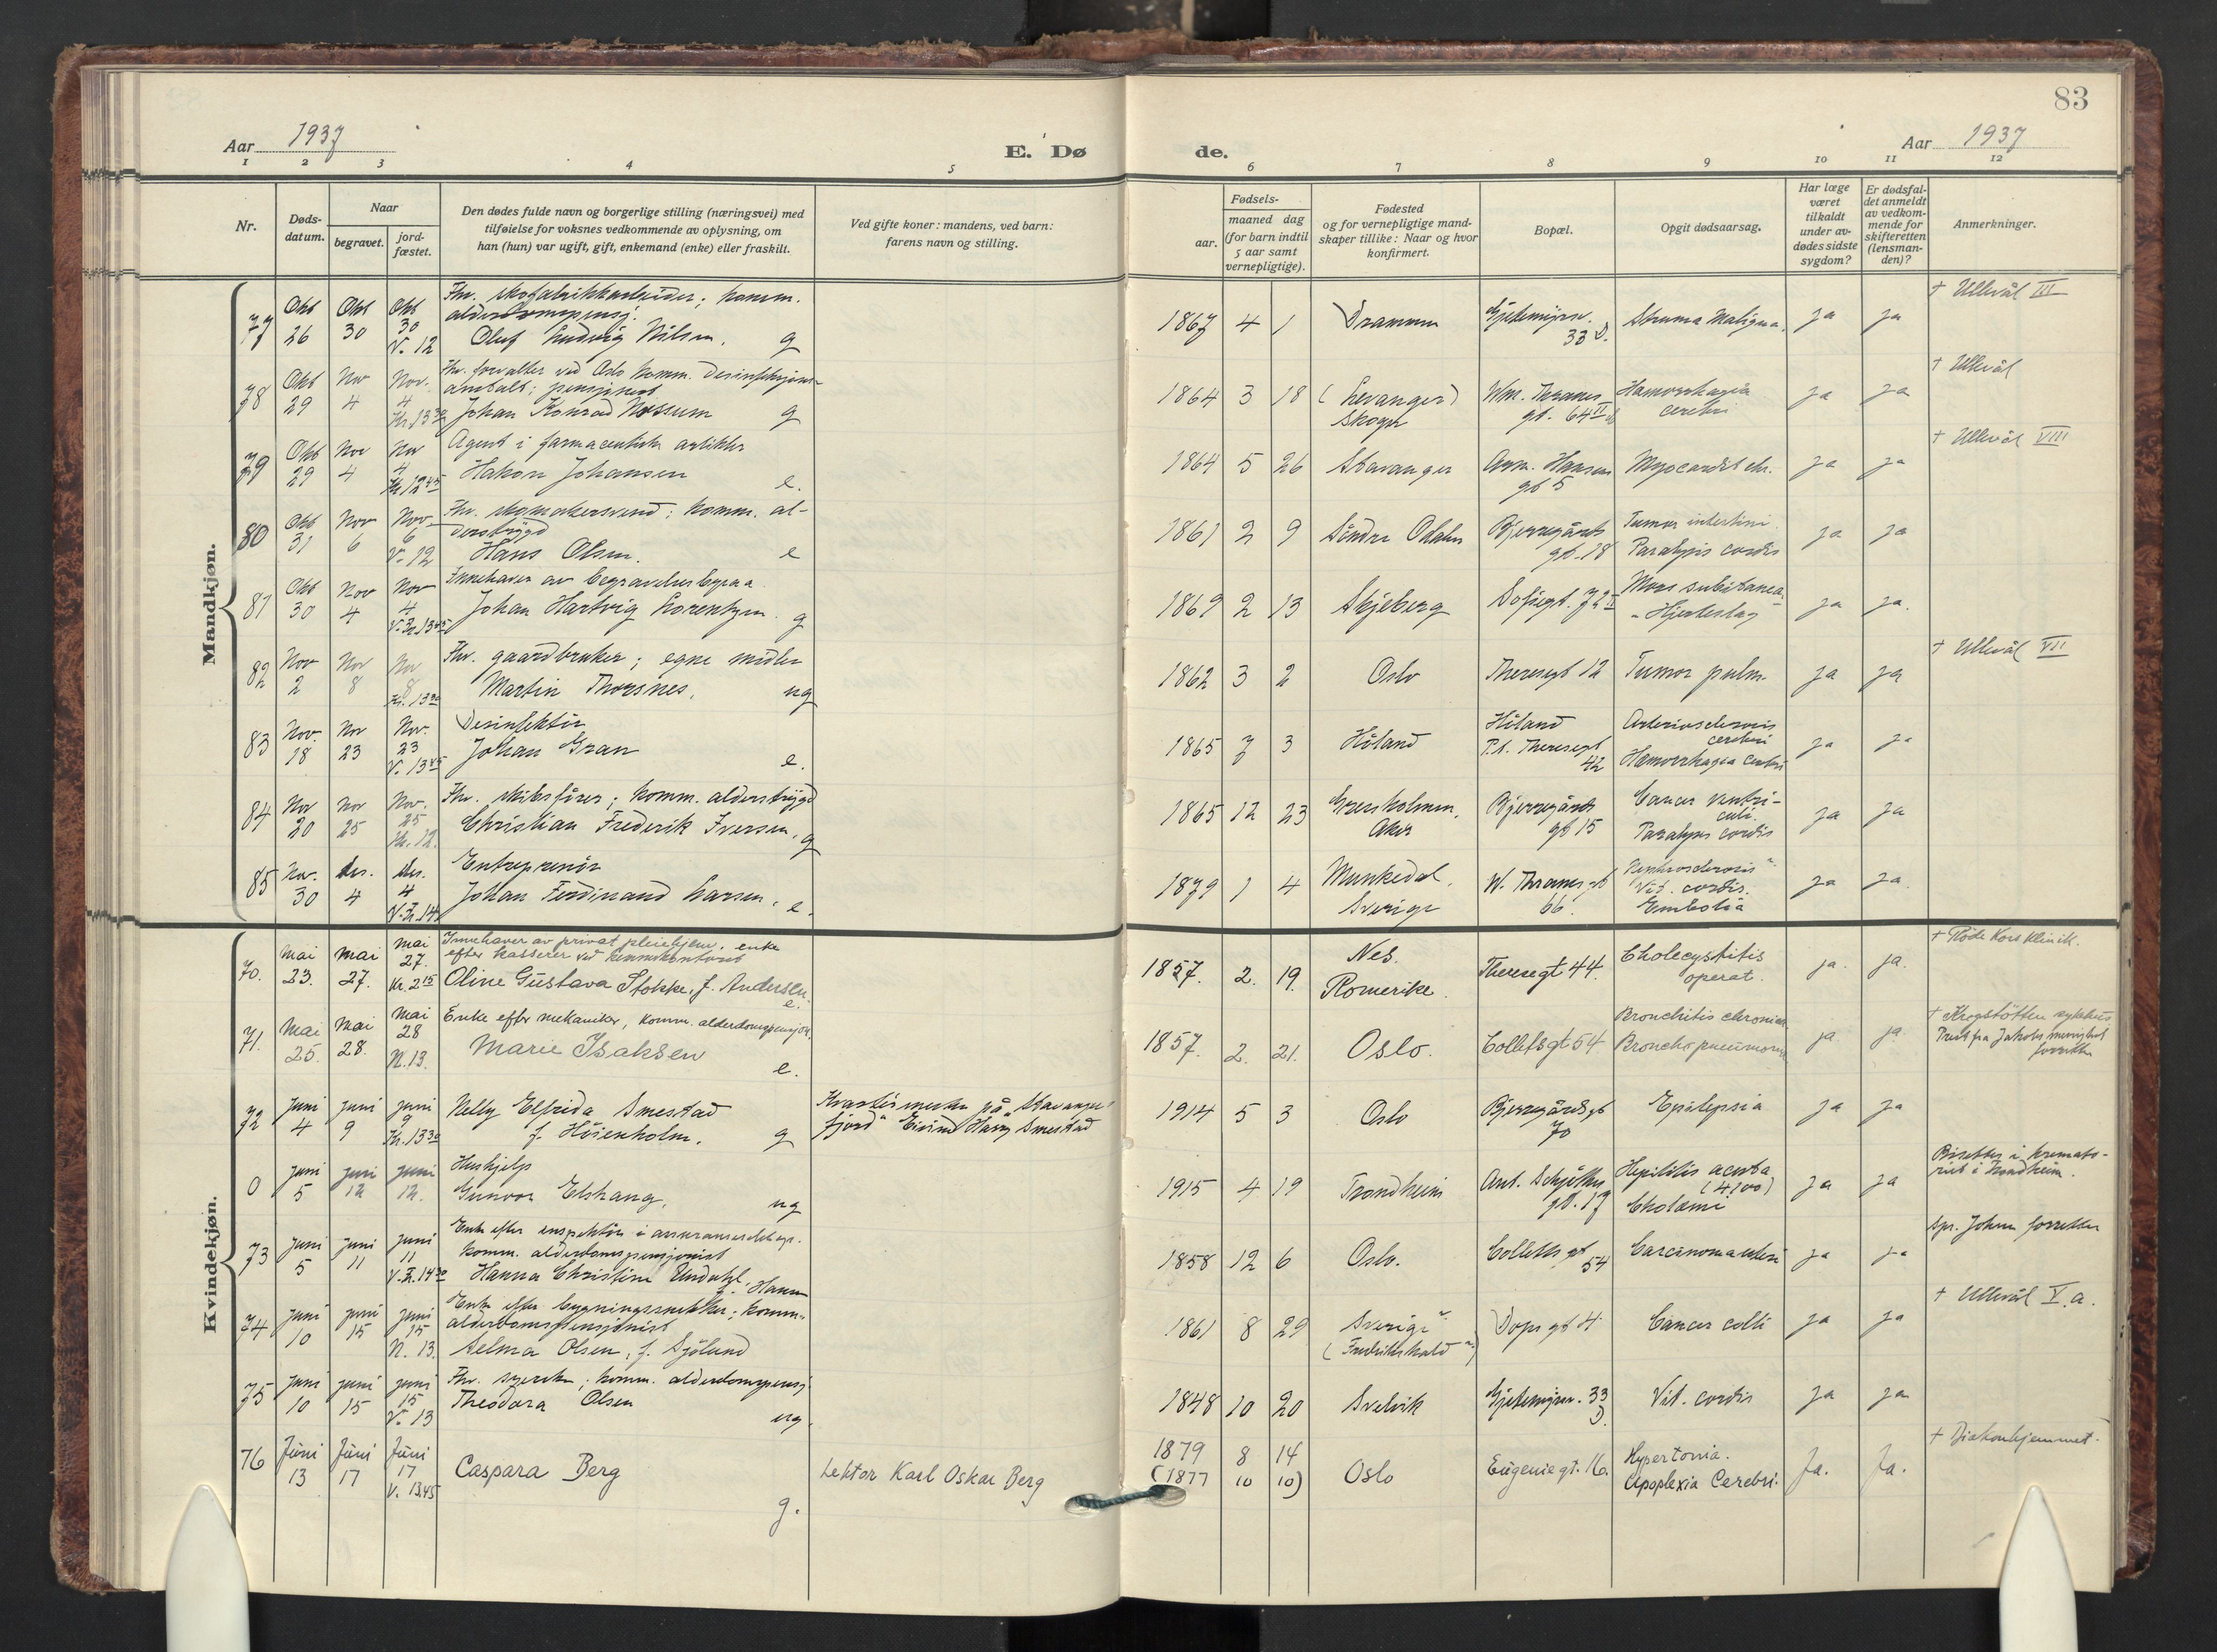 83
Aar 1937
E. Dø de.
Aar 1937
1 2 3 4 5 6 7 8 9 10 11 12
Nr.
Døds-
datum.
Naar
begravet.
jord-
fæstet.
Den dødes fulde navn og borgerlige stilling (næringsvei) med
tilføielse for voksnes vedkommende av oplysning, om
han (hun) var ugift, gift, enkemand (enke) eller fraskilt.
Ved gifte koner: mandens, ved barn:
farens navn og stilling.
Fødsels-
aar.
maaned dag
(for barn indtil
5 aar samt
vernepligtige).
Fødested
og for vernepligtige mand-
skaper tillike: Naar og hvor
konfirmert.
Bopæl.
Opgit dødsaarsag.
Har læge
været
tilkaldt
under av-
dødes sidste
sygdom?
Er dødsfal-
det anmeldt
av vedkom-
mende for
skifteretten
(lensman-
den)?
Anmerkninger.
Mandkjøn.
77 Okt 26 Okt 30 Okt 30 V. 12
Fhv. skofabrikkarbeider; komm.
alderdomspensj.
Oluf Ludvig Nilsen. g
1867 4 1 Drammen Gjetemyrsv. 33 D. Struma Maligna. ja ja + Ullevål III
78 Okt 29 Nov 4 Nov. 4 Kr. 13 30
Fhv. forvalter ved Oslo komm. Desinfeksjons-
anstalt; pensjonist
Johan Konrad Nossum g
1864 3 18 (Levanger) Skoger Wm. Thranes gt. 64 II Hæmorrhagia cerebri ja ja + Ullevål
79 Okt 29 Nov 4 Nov 4 Kr. 12 45
Agent i farmaceutiske artikler
Hakon Johansen e.
1864 5 26 Stavanger Arn. Hansens gt 5 Myocardit chr. ja ja + Ullevål VIII
80 Okt 31 Nov 6 Nov 6 V. 12
Fhv. skomakersvend; komm. al-
derstrygd
Hans Olsen. e
1861 2 9 Søndre Odalen Bjerregårds gt. 18 Tumor intestini. Paralysis cordis ja ja
81 Okt 30 Nov 4 Nov 4 V. Kr. 13 45
Innehaver av begravelsesbyraa
Johan Hartvig Lorentzen. g
1869 2 13 Skjeberg Sofiegt. 72 II Mors subitanea. "Hjerteslag" ja ja.
82 Nov 2 Nov 8 Nov 8 Kr. 13 30
Fhv. gaardbruker; egne midler
Martin Thorsnes. ug
1862 3 2 Oslo Theresegt 12 Tumor pulm. ja ja + Ullevål VII
83 Nov. 18 Nov 23 Nov. 23 V. 13 45
Desinfektør
Johan Gran e.
1865 7 3 Høland Høland P.t. Theresegt 42 Arteriosclerosis cerebri Hæmorrhagia cerebri ja ja
84 Nov 20 Nov 25 Nov. 25 Kr. 12.
Fhv. skibsfører; komm. alderstrygd
Christian Frederik Iversen. g
1865 12 23 Gressholmen, Aker Bjerregårds gt 15 Cancer ventri- culi. Paralysis cordis ja ja
85 Nov. 30 des. 4 des. 4 V. Kr. 14
Entreprenør
Johan Ferdinand Larsen. e.
1879 1 4 Munkedal, Sverige W. Thranes gt 66. Nephrosclerosis Vit. cordis. Embolia ja ja
Kvindekjøn.
70. Mai 23. Mai 27. Mai 27. Kr. 2 15
Innehaver av privat pleiehjem. enke
efter kasserer ved
Oline Gustava Stokke, f. Andersen. e.
1857. 2. 19. Nes. Romerike. Theresegt 44. Cholecystitis operat. ja. ja. + Røde Kors Klinik.
71. Mai 25. Mai 28. Mai 28 N. 13.
Enke efter mekaniker, komm. alderdomspensjon.
Marie Isaksen e.
1857. 2. 21. Oslo. Colletsgt 54 Bronchitis chronica Bronchopneumoni ja ja + Krogstøtten sykehus Prest fra Jakobs menighet forrettet
72 Juni 4 juni 9 juni 9 Kr. 13 30
Nelly Elfrida Smestad
f. Høienholm. g
Kvartermester på "Stavanger-
fjord" Eivind Harry Smestad
1914 5 3 Oslo Bjerregårdsgt 70 Epilepsia ja ja
0 Juni 5 juni 12 juni 12.
Hushjelp
Gunvor Elshaug. ug
1915 4 19 Trondheim Ant. Schjøths gt. 17 Hepititis acuta (4,100) Cholæmi ja ja Bisettes i kremato- riet i Trondheim.
73 Juni 5 juni 11 juni 11 V. Kr. 14 30
Enke efter inspektør i assuranseselskap.
komm. alderdomspensjonist
Hanna Christine Undahl, f. Hansen
1858 12 6 Oslo. Colletts gt 54 Carcinoma uteri ja ja Spr. Johnsen forrettet
74 Juni 10 juni 15 juni 15 N. 13.
Enke efter bygningssnekker; komm.
alderdomspensjonist
Selma Olsen, f. Sjølund
1861 8 29 Sverige (Fredrikshald) Dops gt 4 Cancer colli ja ja + Ullevål V.a.
75 Juni 10 juni 15 juni 15 V. 13
Fhv. syerske; komm. alderdomspensj
Theodora Olsen ug.
1848 10 20 Svelvik Gjetemyrsv. 33 D. Vit. cordis ja ja
76 Juni 13 Juni 17 Juni 17 V. 13.45
Caspara Berg g.
Lektor Karl Oskar Berg
1879 8 14 (1877 10 10) Oslo Eugeniegt. 16. Hypertonia. Apoplexia Cerebri. Ja. Ja. + Diakonhjemmet.